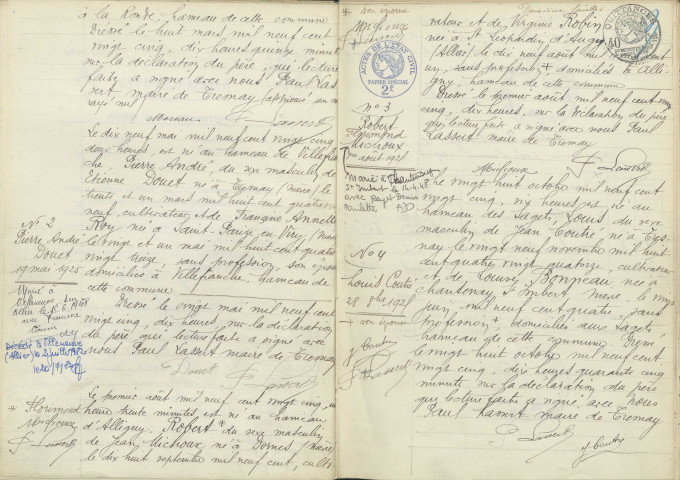 à la Ronde, hameau de cette commune
Dressé le huit mars mil neuf cent
vingt cinq, dix heures quinze minutes
sur la déclaration du père, qui, lecture
faite, a signé avec nous Paul Las-
sert maire de Tresnay
Le dix neuf mai mil neuf cent vingt cinq
deux heures, est né au hameau de Villefran
che Pierre André, du sexe masculin, de
Etienne Douet né à Tresnay (Nièvre) le
trente et un mars mil huit cent quatre
neuf, cultivateur, et de Françoise Annette
Roy née à Saint
le vingt et un mai mil huit cent quatre
vingt treize, sans profession, son épouse
domiciliés à Villefranche, hameau de
cette commune
Dressé le vingt mai mil neuf cent
vingt cinq, dix heures, sur la déclaration
du père qui, lecture faite a signé avec
nous Paul Lassert maire de Tresnay
Douet
Le premier août mil neuf cent vingt cinq, une
heure trente minutes, est né au hameau
d'Alligny, Robert * du sexe masculin
de Jean Michoux, né à Dornes (Nièvre)
le dix huit septembre mil neuf cent, culti-
No 2
Pierre André
Douet
19 mai 1925
Marié à
* Florimond
Michoux
* son épouse
Michoux
ACTES DE L'ETAT CIVIL
PAPIER SPECIAL
2F
No 3
Robert
Florimond
Michoux
1er août 1925
Marié à Chantenay
St Imbert le 14.4.48
avec
No 4
Louis Coutré
28 8bre 1925
* son épouse
QUITTANCES
vateur et de Virginie Robin
née à St Léopardin d'Augy
(Allier) le dix neuf août mil neuf cent
un, sans profession, * domiciliés à Alli-
gny, hameau de cette commune
Dressé le premier août mil neuf cent vingt
cinq, dix heures, sur la déclaration du père
qui, lecture faite, a signé avec nous Paul
Lassert maire de Tresnay
Michoux
Le vingt huit octobre mil neuf cent
vingt cinq, six heures est né au
hameau des Sagets, Louis du sexe
masculin de Jean Coutré, né à Tres-
nay le vingt neuf novembre mil huit
cent quatre vingt quatorze, cultivateur
et de Louise Bonneau née à
Chantenay St Imbert, Nièvre, le vingt
juin mil neuf cent quatre, sans
profession * domiciliés aux Sagets
hameau de cette commune. Dressé
le vingt huit octobre mil neuf cent
vingt cinq, dix heures quarante cinq
minutes, sur la déclaration du père
qui, lecture faite a signé avec nous
Paul Lassert maire de Tresnay